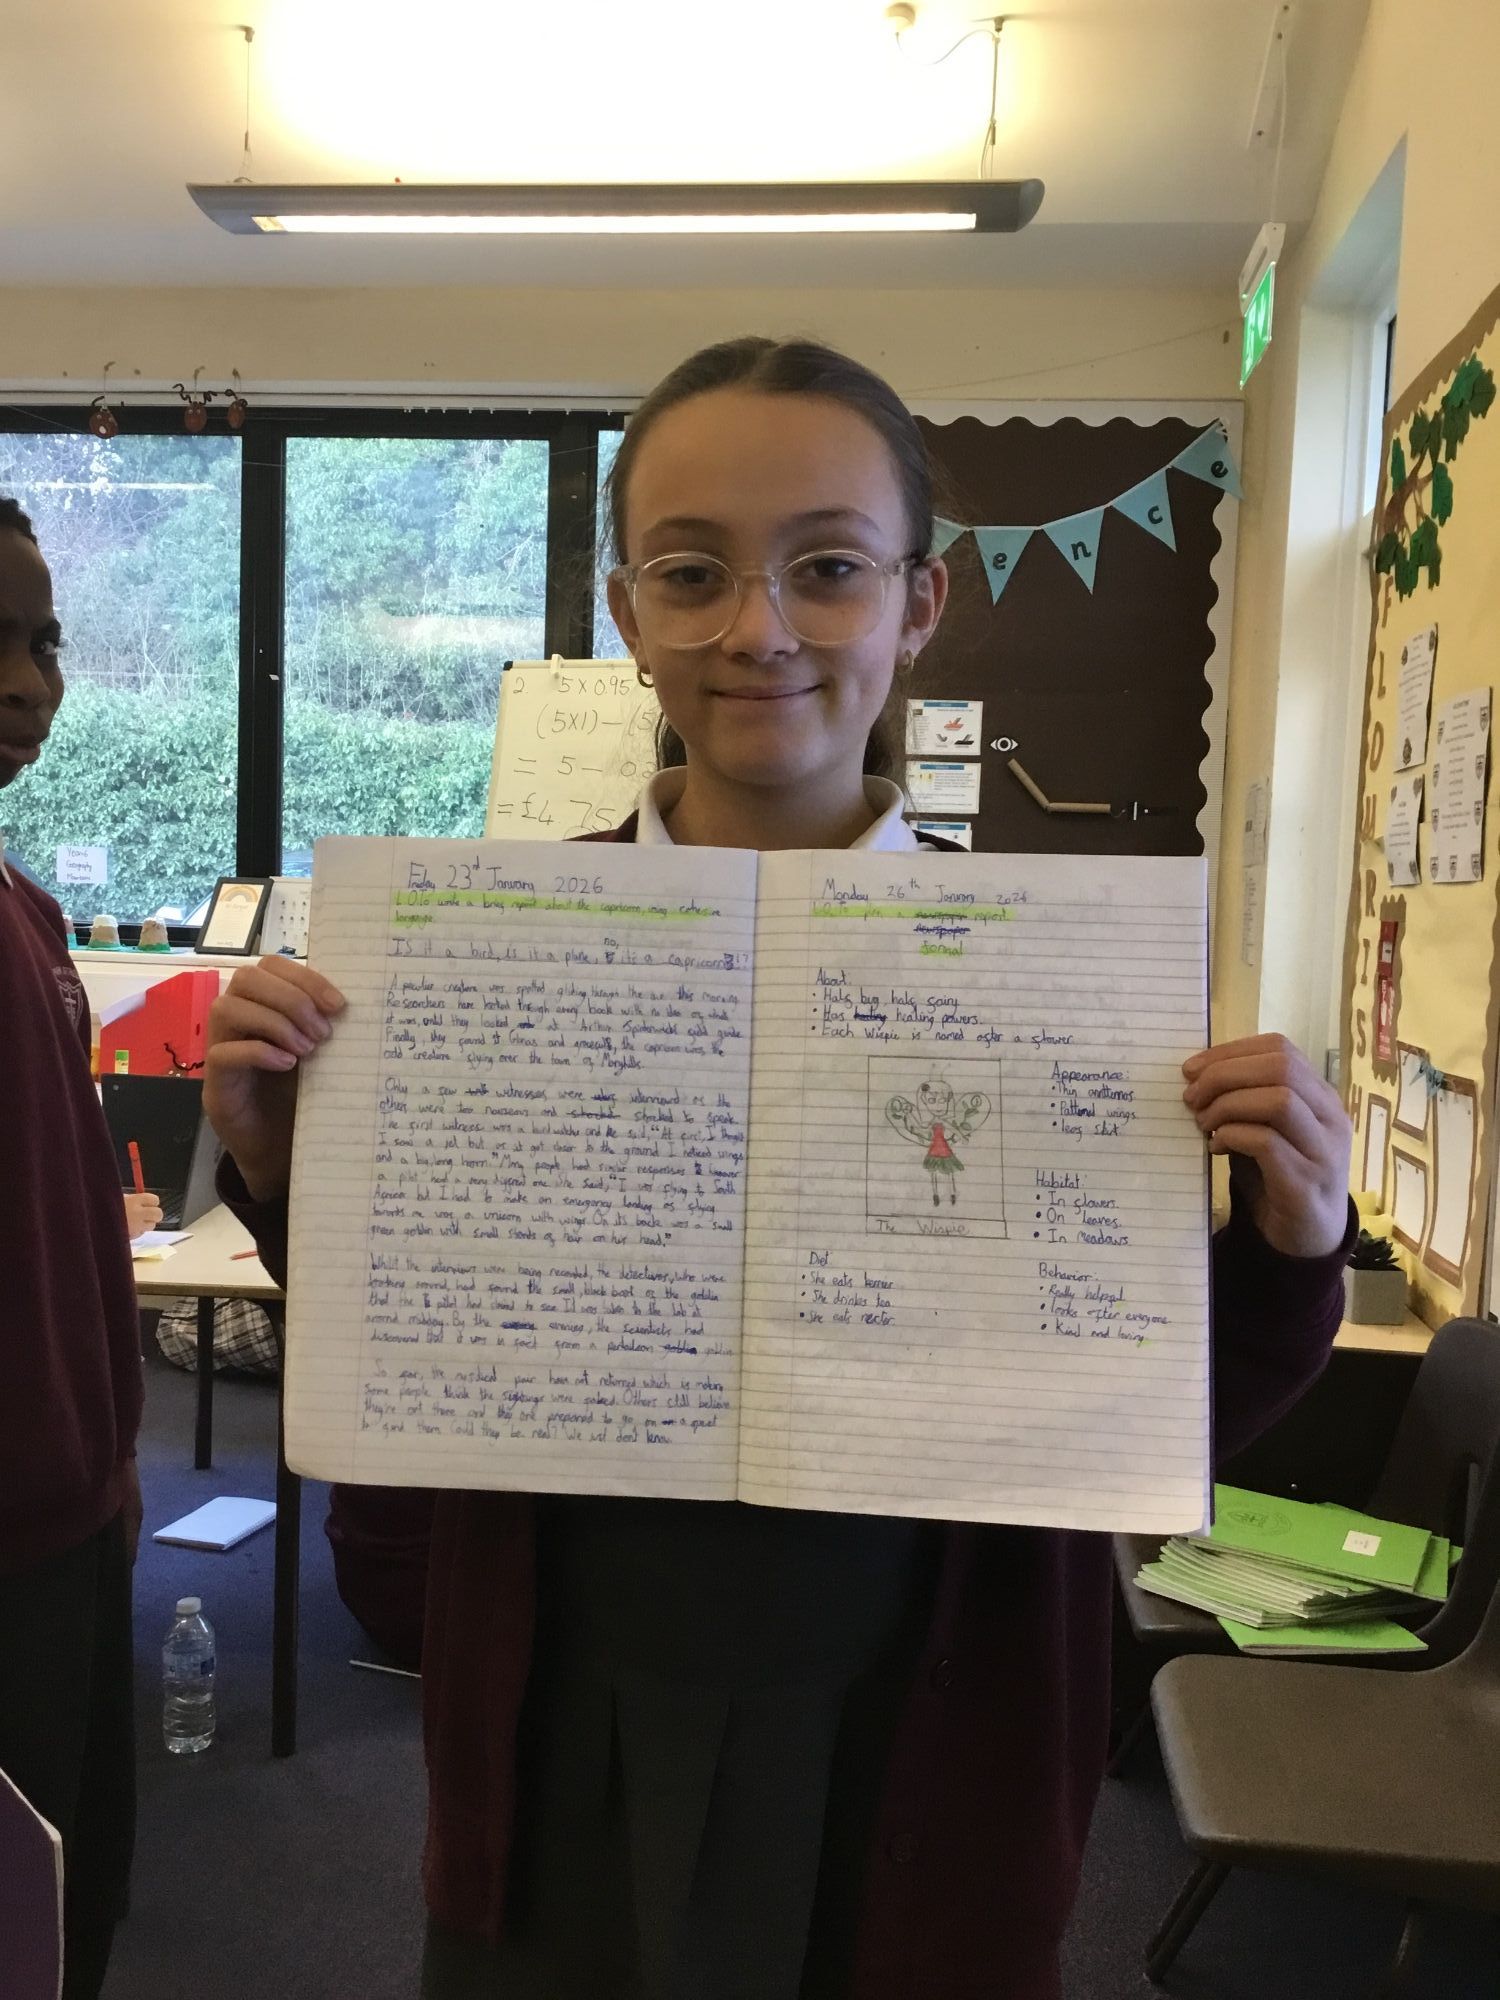 Friday 23rd January 2026
L.O.To write a brief report about the capricorn, using cohesive
language.
Is it a bird, is it a plane, no, it's a capricorn!?
A peculiar creature was spotted gliding through the air this morning
Researchers have looked through every book with no idea of what
it was, until they looked at Arthur Spiderwick's guide
Finally, they found it the capricorn was the
odd creature flying over the town of
Only a few witnesses were interviewed as the
others were too and shocked to speak.
The first witness was a birdwatcher and he said, "At first, I thought
I saw a jet but as it got closer to the ground I noticed wings
and a big, long horn." Many people had similar responses however
a pilot had a very different one. She said, "I was flying to South
Africa but I had to make an emergency landing as flying
towards me was a unicorn with wings. On its back was a small
green goblin with small strands of hair on his head."
Whilst the interviews were being recorded, the detectives, who were
looking around, had found the small, black boot of the goblin
that the pilot had claimed to see. It was taken to the lab at
around midday. By the evening, the scientists had
discovered that it was in fact from a goblin goblin
So far, the pair have not returned which is making
some people think the sightings were faked. Others still believe
they're out there and they are prepared to go on a quest
to find them. Could they be real? We just don't know.
Monday 26th January 2026
L.O. To plan a newspaper report
newspaper
formal
About:
• Half bug, half fairy
• Has healing powers.
• Each Wispie is named after a flower
Appearance:
• Thin
• Patterned wings.
• leaf skirt.
The Wispie
Habitat:
• In flowers.
• On leaves.
• In Meadows.
Diet
• She eats
• She drinks tea.
• She eats nectar.
Behavior:
• Really helpful
• looks after everyone
• Kind and loving
2 5 X 0.95
(5X1) – (5
= 5 –
= £4.75
e n c e
FLOURISH
Year 6
Geography
Mountains